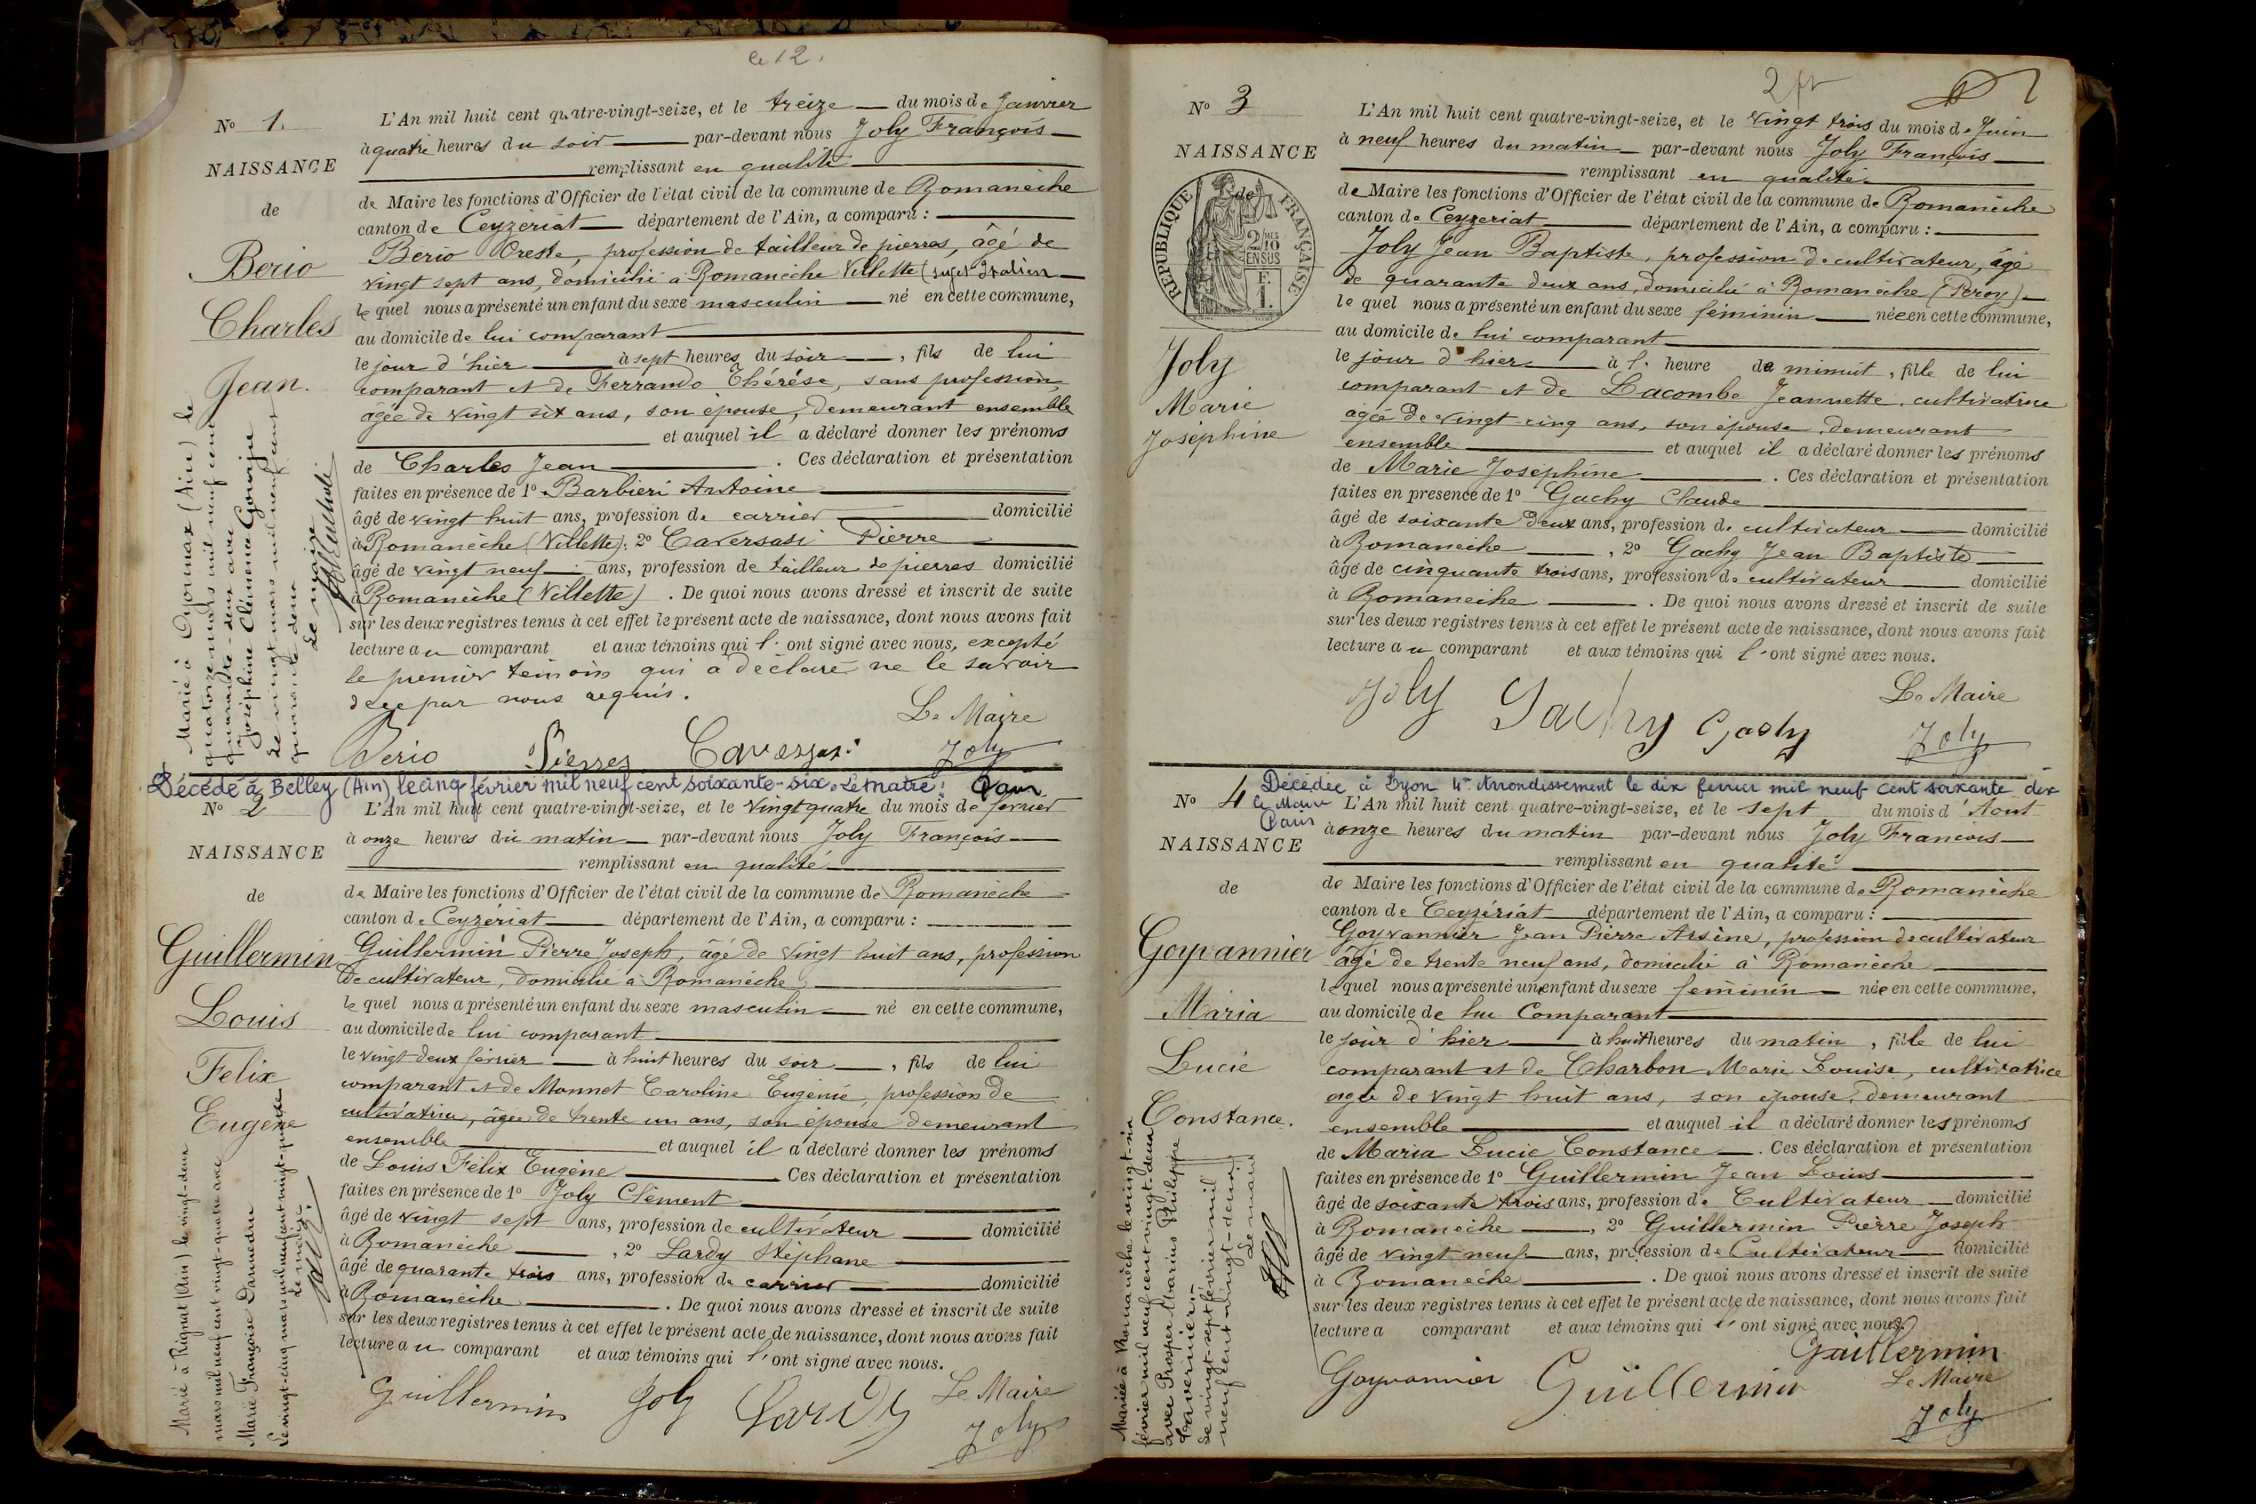 Le 12.
No 1.
NAISSANCE
de
Berio
Charles
Jean.
L'An mil huit cent quatre-vingt-seize, et le treize du mois de Janvier
à quatre heures du soir par-devant nous Joly François
remplissant en qualité
de Maire les fonctions d'Officier de l'état civil de la commune de Romanèche
canton de Ceyzériat département de l'Ain, a comparu :
Berio Oreste, profession de tailleur de pierres, âgé de
vingt sept ans, domicilié à Romanèche Villette (sujet Italien
le quel nous a présenté un enfant du sexe masculin né en cette commune,
au domicile de lui comparant
le jour d'hier à sept heures du soir, fils de lui
comparant et de Ferrando Thérése, sans profession,
âgée de vingt six ans, son épouse, demeurant ensemble
et auquel il a déclaré donner les prénoms
de Charles Jean. Ces déclaration et présentation
faites en présence de 1o Barbieri Antoine
âgé de vingt huit ans, profession de carrier domicilié
à Romanèche (Villette), 2o Caversasi Pierre
âgé de vingt neuf ans, profession de tailleur de pierres domicilié
à Romanèche (Villette). De quoi nous avons dressé et inscrit de suite
sur les deux registres tenus à cet effet le présent acte de naissance, dont nous avons fait
lecture au comparant et aux témoins qui l'ont signé avec nous, excepté
le premier témoin qui a déclaré ne le savoir
de ce par nous requis.
Le Maire
Berio Pierres Caversasi Joly
Marié à Oyonnax (Ain) le
quatorze mars mil neuf cent
quarante-deux avec
Joséphine Clémence
Le vingt mars mil neuf cent
quarante deux
Le maire
Décédé à Belley (Ain) le cinq février mil neuf cent soixante-six. Le Maire :
No 2
NAISSANCE
de
Guillermin
Louis
Felix
Eugène
L'An mil huit cent quatre-vingt-seize, et le vingt quatre du mois de fevrier
à onze heures du matin par-devant nous Joly François
remplissant en qualité
de Maire les fonctions d'Officier de l'état civil de la commune de Romanèche
canton de Ceyzériat département de l'Ain, a comparu :
Guillermin Pierre Joseph, âgé de vingt huit ans, profession
de cultivateur, domicilié à Romanèche,
le quel nous a présenté un enfant du sexe masculin né en cette commune,
au domicile de lui comparant
le vingt deux février à huit heures du soir, fils de lui
comparant et de Monnet Caroline Eugénie, profession de
cultivatrice, âgée de trente un ans, son épouse demeurant
ensemble et auquel il a déclaré donner les prénoms
de Louis Félix Eugène Ces déclaration et présentation
faites en présence de 1o Joly Clément
âgé de vingt sept ans, profession de cultivateur domicilié
à Romanèche, 2o Lardy Stéphane
âgé de quarante trois ans, profession de carrier domicilié
à Romanèche. De quoi nous avons dressé et inscrit de suite
sur les deux registres tenus à cet effet le présent acte de naissance, dont nous avons fait
lecture au comparant et aux témoins qui l'ont signé avec nous.
Guillermin Joly Lardy Le Maire
Joly
Marié à Rignat (Ain) le vingt-deux
mars mil neuf cent vingt-quatre avec
Marie Françoise
Le vingt-cinq mars mil neuf cent vingt-quatre
Le maire
2
No 3
NAISSANCE
de
RÉPUBLIQUE FRANÇAISE
2/10 EN SUS
F.
1.
Joly
Marie
Joséphine
L'An mil huit cent quatre-vingt-seize, et le vingt trois du mois de Juin
à neuf heures du matin par-devant nous Joly François
remplissant en qualité
de Maire les fonctions d'Officier de l'état civil de la commune de Romanèche
canton de Ceyzeriat département de l'Ain, a comparu :
Joly Jean Baptiste, profession de cultivateur, âgé
de quarante deux ans, domicilié à Romanèche (Peroy)
le quel nous a présenté un enfant du sexe féminin née en cette commune,
au domicile de lui comparant
le jour d'hier à l'heure de minuit, fille de lui
comparant et de Lacombe Jeannette, cultivatrice
âgée de vingt-cinq ans, son épouse demeurant
ensemble et auquel il a déclaré donner les prénoms
de Marie Joséphine. Ces déclaration et présentation
faites en présence de 1o Gachy Claude
âgé de soixante deux ans, profession de cultivateur domicilié
à Romaneche, 2o Gachy Jean Baptiste
âgé de cinquante trois ans, profession de cultivateur domicilié
à Romaneche. De quoi nous avons dressé et inscrit de suite
sur les deux registres tenus à cet effet le présent acte de naissance, dont nous avons fait
lecture au comparant et aux témoins qui l'ont signé avec nous.
Joly Gachy Gachy Le Maire
Joly
Décédée à Lyon 4e Arrondissement le dix fevrier mil neuf cent soixante dix
Le Maire
No 4
NAISSANCE
de
Goyvannier
Maria
Lucie
Constance.
L'An mil huit cent quatre-vingt-seize, et le sept du mois d'Aout
à onze heures du matin par-devant nous Joly François
remplissant en qualité
de Maire les fonctions d'Officier de l'état civil de la commune de Romanèche
canton de Ceyzériat département de l'Ain, a comparu :
Goyvannier Jean Pierre Arsène, profession de cultivateur
âgé de trente neuf ans, domicilié à Romanèche
lequel nous a présenté un enfant du sexe feminin née en cette commune,
au domicile de lui Comparant
le jour d'hier à huit heures du matin, fille de lui
comparant et de Charbon Marie Louise, cultivatrice
agée de vingt huit ans, son épouse, demeurant
ensemble et auquel il a déclaré donner les prénoms
de Maria Lucie Constance. Ces déclaration et présentation
faites en présence de 1o Guillermin Jean Louis
âgé de soixante trois ans, profession de Cultivateur domicilié
à Romaneche, 2o Guillermin Pierre Joseph
âgé de vingt neuf ans, profession de Cultivateur domicilié
à Romanèche. De quoi nous avons dressé et inscrit de suite
sur les deux registres tenus à cet effet le présent acte de naissance, dont nous avons fait
lecture a comparant et aux témoins qui l'ont signé avec nous.
Guillermin
Goyvannier Guillermin Le Maire
Joly
Mariée à Romanèche le vingt-six
février mil neuf cent vingt-deux
avec Prosper Marius Philippe
Tavernier.-
Le vingt-sept février mil
neuf cent vingt-deux
Le maire